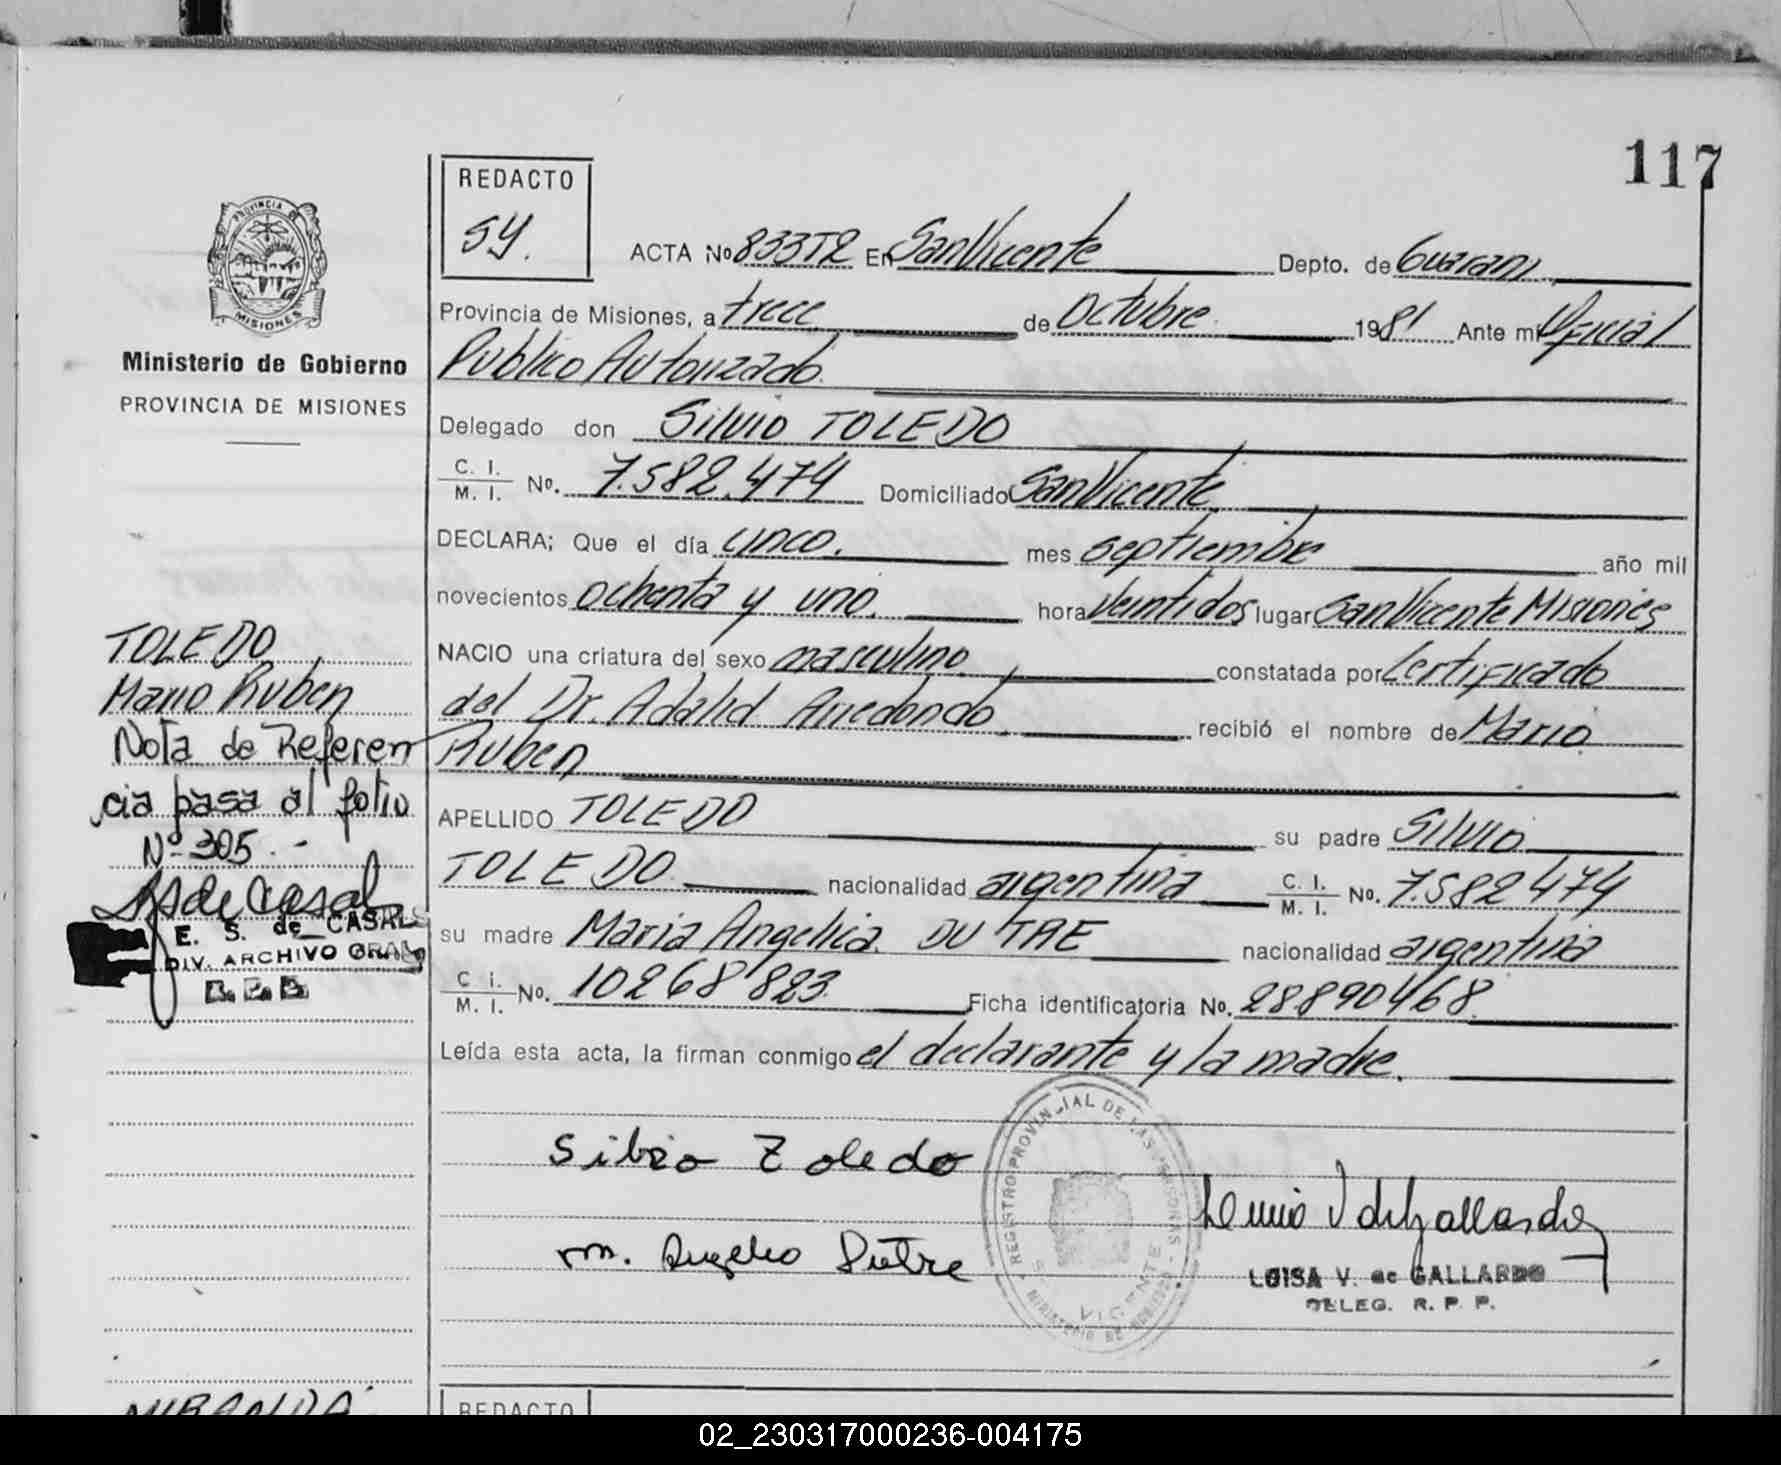 117
REDACTO
SY.
PROVINCIA DE
MISIONES
Ministerio de Gobierno
PROVINCIA DE MISIONES
ACTA Nº 833T2 En San Vicente Depto. de Guarani
Provincia de Misiones, a trece de Octubre 1981 Ante mi Oficial
Publico Autorizado.
Delegado don Silvio TOLEDO
C. I. / M. I. Nº. 7.582.474 Domiciliado San Vicente
DECLARA; Que el día cinco. mes septiembre año mil
novecientos ochenta y uno. hora veintidos lugar San Vicente Misiones
NACIO una criatura del sexo masculino. constatada por Certificado
del Dr. Adalid Arredondo. recibió el nombre de Mario
Ruben
APELLIDO TOLEDO su padre Silvio
TOLEDO nacionalidad argentina C. I. / M. I. Nº. 7.582474
su madre Maria Angelica DUTRE nacionalidad argentina
C. I. / M. I. Nº. 10268823. Ficha identificatoria Nº. 28890468.
Leída esta acta, la firman conmigo el declarante y la madre.
TOLEDO
Mario Ruben
Nota de Referen
cia pasa al folio
Nº 305.-
E. S. de CASALS
DIV. ARCHIVO GRAL
Silvio Toledo
m. Angelica Dutre
REGISTRO PROVINCIAL DE LAS PERSONAS
VICENTE
MINISTERIO DE GOBIERNO
LUISA V. de GALLARDO
DELEG. R. P. P.
MIRANDA
REDACTO
02_230317000236-004175